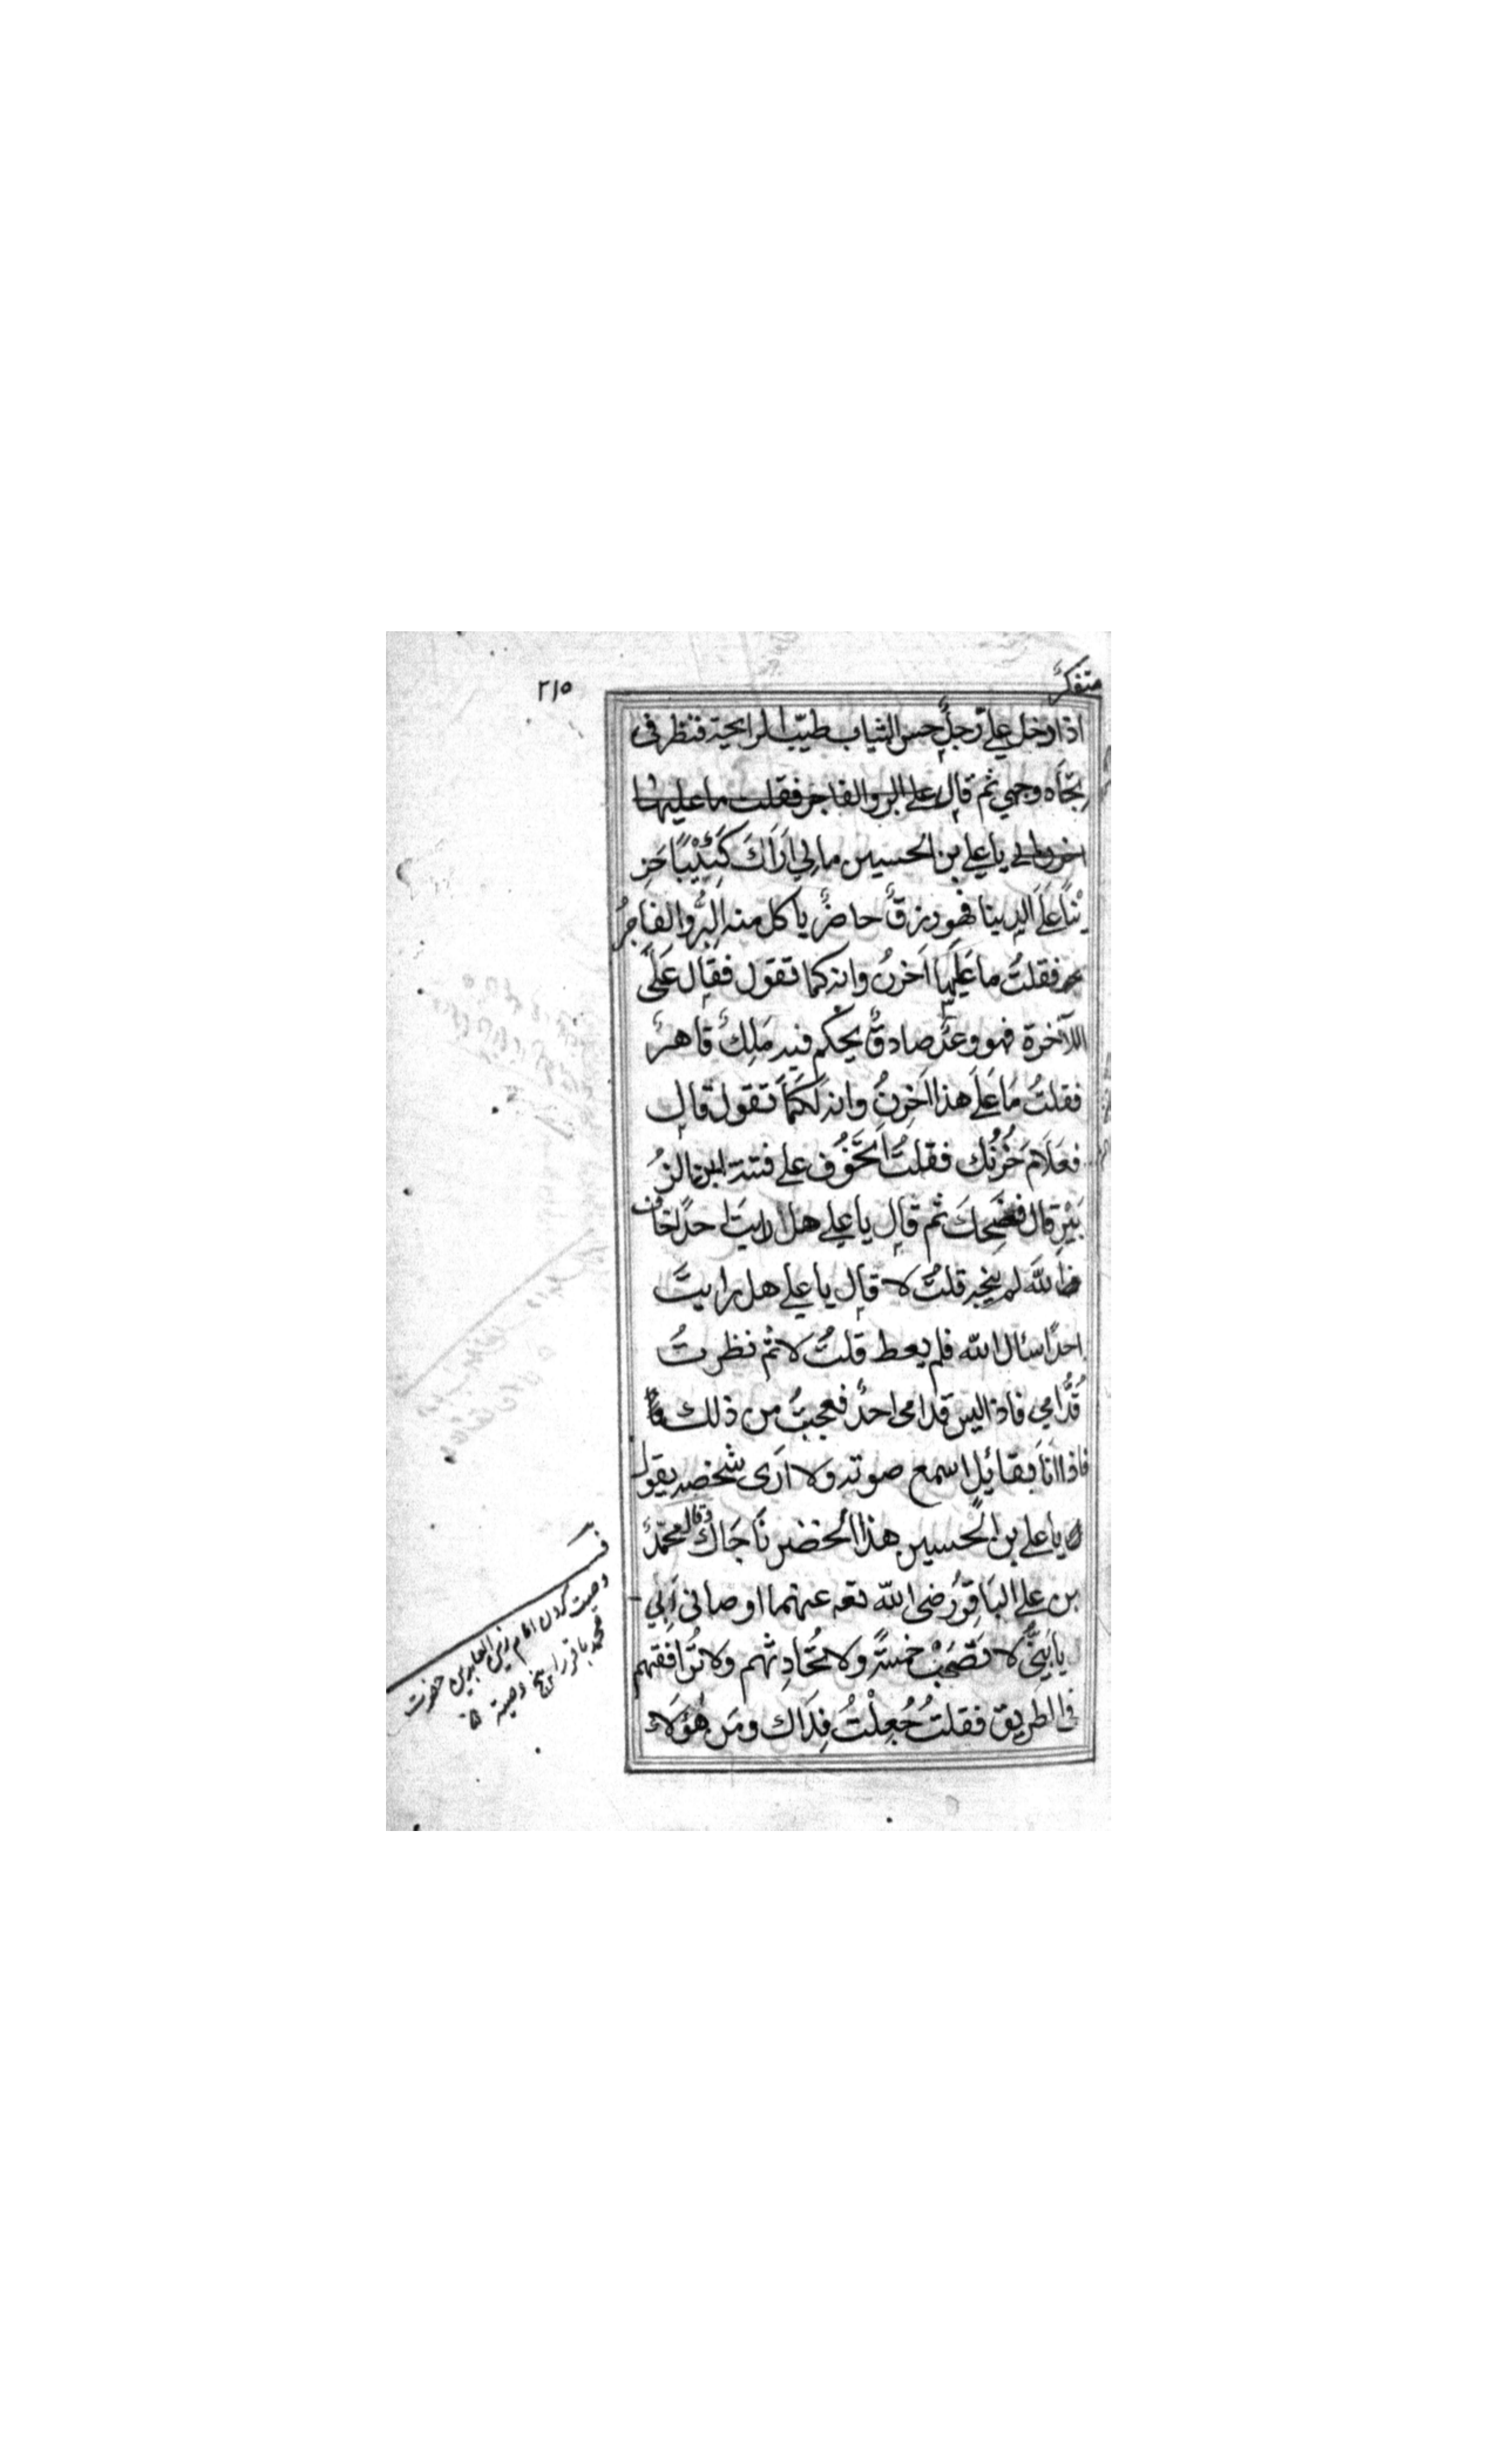 متفكرً
٢١٥
اذا دخل عليّ رجلٌ حسن الثياب طيّب الرايحة فنظر فى
تجاه وجهي ثم قال على البر والفاجر فقلت ما عليها
احزن يا علي بن الحسين مالي اراك كئيبًا حَزِ
يْنًا علَى الدينا فهو رزقٌ حاضرٌ ياكل منه البرُّ والفاجرُ
فقلتُ ما عَلَيها اَحزنُ وانه كما تقول فقال عَلَى
الآخرة فهو وعدٌ صادقٌ يحكم فيه مَلِكٌ قاهرٌ
فقلتُ مَا عَلَى هذا اَحزنُ وانه لَكَمَا تقول قال
فعَلَامَ حُزنُك فقلتُ اتخوّف على فتنة ابن الز
بَيْرِ قال فضَحِكَ ثم قال يا علي هل رايتَ احدًا خاف
اللّٰه لم ينجه قلتُ لا قال يا علي هل رايتَ
احدًا سئال اللّٰه فلم يعط قلتُ لا ثم نظرتُ
قُدَّامي فاذا ليس قدامى احدٌ فعجبتُ من ذلك
فاذا انَا بقائِلٍ اسمع صوته ولا ارَى شخصه يقول
يا علي بن الحسين هذا الخضر نَاجَاكَ وقال محمّدُ
بن علي البَاقِرُ رضى اللّٰه تعه عنهما اوصانى اَبِي
يا بَنيَّ لا تَصْحَبْ خمسةً ولا تُحَادِثهم ولا تُرافِقهم
فى الطريق فقلتُ جُعِلْتُ فِدَاك ومَن هٰؤلاء
وصيت كردن امام زين العابدين حضرت
محمد باقر را بپنج وصية